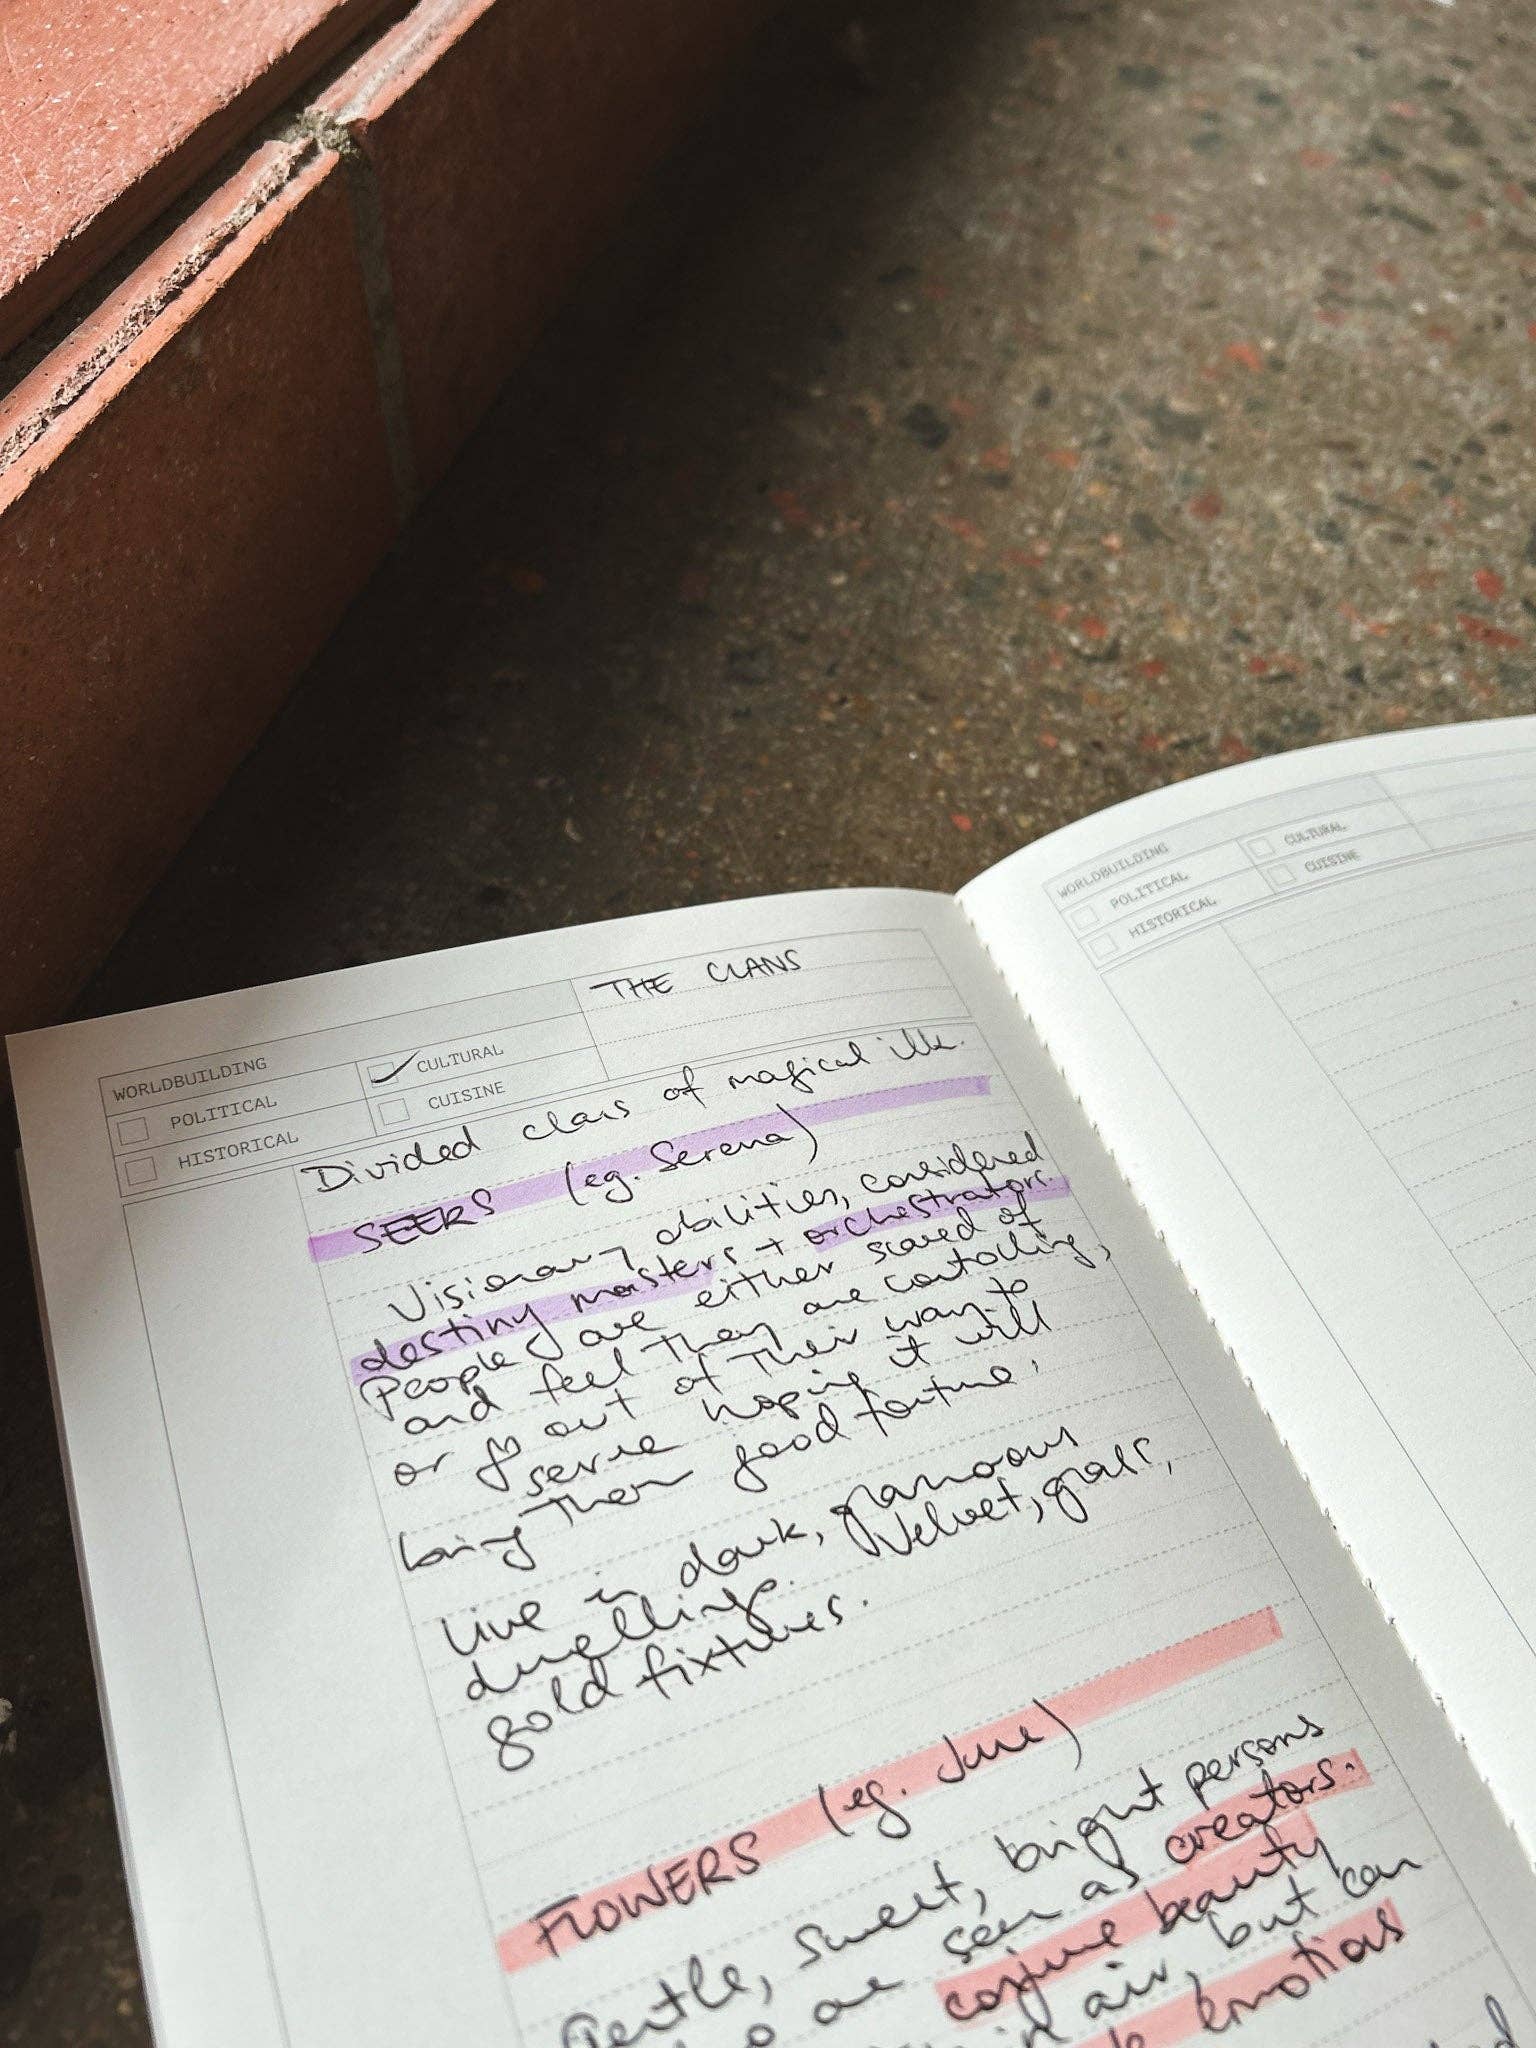 THE CLANS
WORLDBUILDING
CULTURAL
POLITICAL
CUISINE
HISTORICAL
Divided class of magical ilk.
SEERS (eg. Serena)
Visionary abilities, considered
destiny masters + orchestrators.
People are either scared of
and feel they are controlling,
or go out of their way to
serve hoping it will
bring them good fortune.
Live in dark, glamorous
dwellings. Velvet, glass,
gold fixtures.
FLOWERS (eg. June)
Gentle, sweet, bright persons
who are seen as creators.
conjure beauty
air, but can
emotions
WORLDBUILDING
CULTURAL
POLITICAL
CUISINE
HISTORICAL